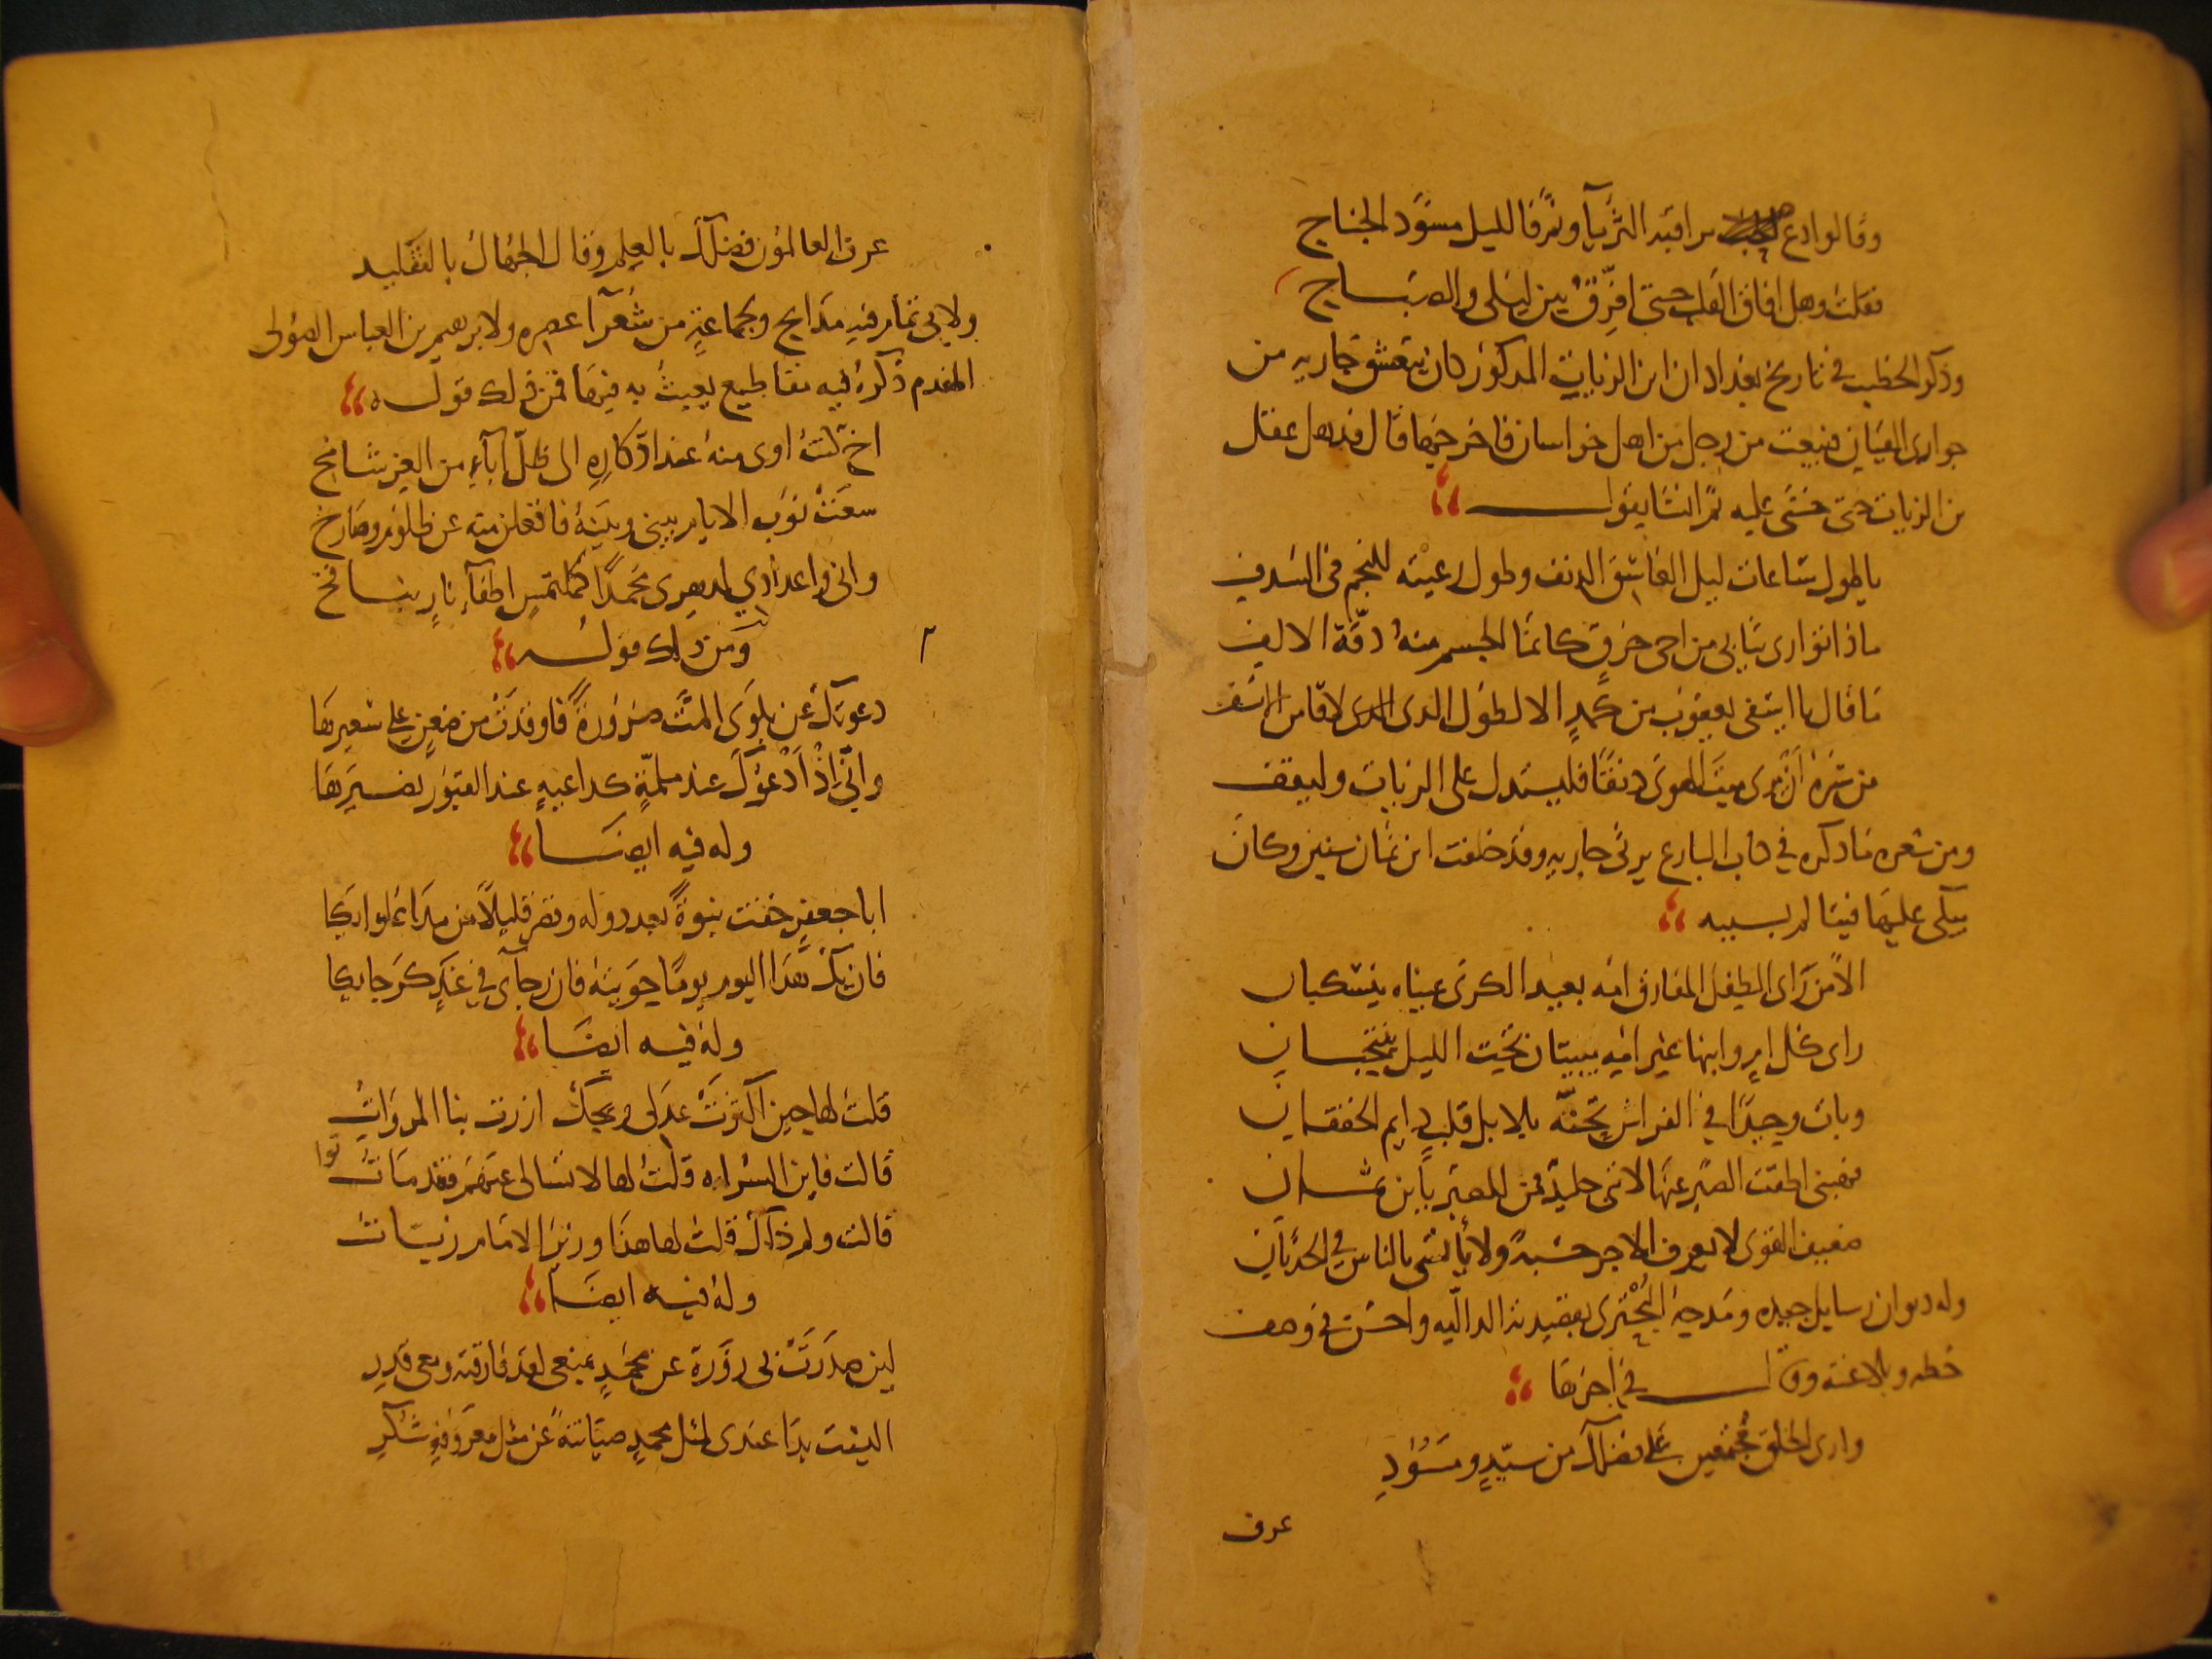 وقالوا دع مراقبة الثريا ونم فالليل مسود الجناح
فقلت وهل افاق القلب حتى افرق بين ليلى والصباح
وذكر الخطيب في تاريخ بغداد ان ابن الزيات المذكور كان يتعشق جارية من
جواري القيان فبيعت من رجل من اهل خراسان فاخرجها قال فذهل عقل
بن الزيات حتى خشي عليه ثم انشا يقول
يا طول ساعات ليل العاشق الدنف وطول رعيته للنجم في السدف
ماذا تواري ثيابي من اخي حرق كانما الجسم منه دقة الالف
ما قال يا اسفى يعقوب من كمد الا لطول الذي لاقا من الاسف
من سره ان يرى ميت الهوى دنفا فليستدل على الزيات وليقف
ومن شعره ما ذكره في كتاب البارع يرثى جاريه وقد خلفت ابن ثمان سنين وكان
يبكى عليها فيتالم بسببه
الا من راى الطفل المفارق امه بعيد الكرى عيناه ينسكبان
راى كل ام وابنها غير امه يبيتان تحت الليل ينتجيان
وبات وحيدا في الفراش تحثه بلابل قلب دايم الخفقان
فهبني اطقت الصبر عنها لانني جليد فمن للصبر يا بن ثمان
ضعيف القوى لا يعرف الاجر حسبة ولا يأتسي بالناس في الحدثان
وله ديوان رسايل جيده ومدحه البحتري بقصيدته الداليه واحسن في وصف
خطه وبلاغته وقال في اخرها
وارى الخلق مجمعين على فضلك من سيد ومسود
عرف
عرف العالمون فضلك بالعلم وقال الجهال بالتقليد
ولابي تمام فيه مدايح ولجماعة من شعرآ عصره ولابرهيم بن العباس الصولي
المقدم ذكره فيه مقاطيع يعبث به فيها فمن ذلك قوله
اخ كنت اوى منه عند ادكاره الى ظل آباء من العز شامخ
سعت نوب الايام بيني وبينه فاقلعن منه عن ظلوم وصارخ
واني واعدادي لدهري محمدا كملتمس اطفآء نار بنافخ
ومن ذلك قوله
دعوتك عن بلوى المت ضرورة فاوقدت من ضغن علي سعيرها
واني اذ ادعوك عند ملمة كداعية عند القبور نصيرها
وله فيه ايضا
ابا جعفر خفت نبوة بعد دوله وقصر قليلا من مدا غلوائكا
فان يك هذا اليوم يوما حويته فان رجآى في غد كرجائكا
وله فيه ايضا
قلت لها حين اكثرت عذلي ويحك ازرت بنا المروات
قالت فاين السراه قلت لها لا تسالي عنهم فقد ماتوا
قالت ولم ذاك قلت لها هذا وزير الامام زيات
وله فيه ايضا
لين صدرت بي زورة عن محمد بمنعي لقد فارقته ومعي قدري
اليست يدا عندي لمثل محمد صيانته عن مثل معروفه شكري